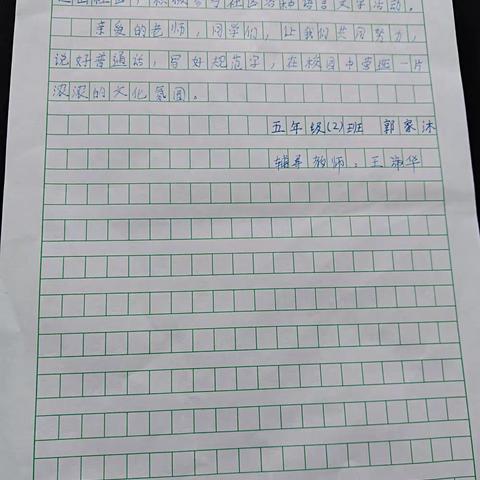 走出社区，积极参与社区各种语言文字活动。
亲爱的老师，同学们，让我们共同努力，
说好普通话，写好规范字，在校园中营造一片
浓浓的文化氛围。
五年级(2)班 郭家沐
辅导教师：王淑华